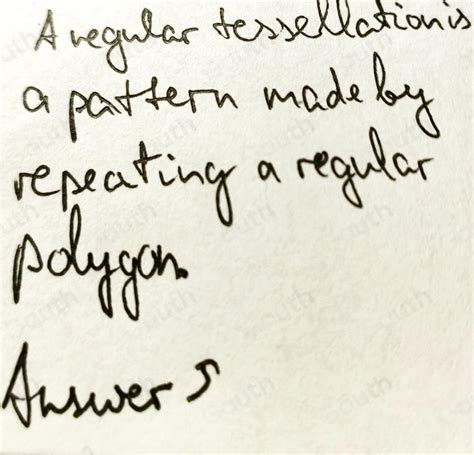 A regular tessellation is
a pattern made by
repeating a regular
polygon.
Answer 5